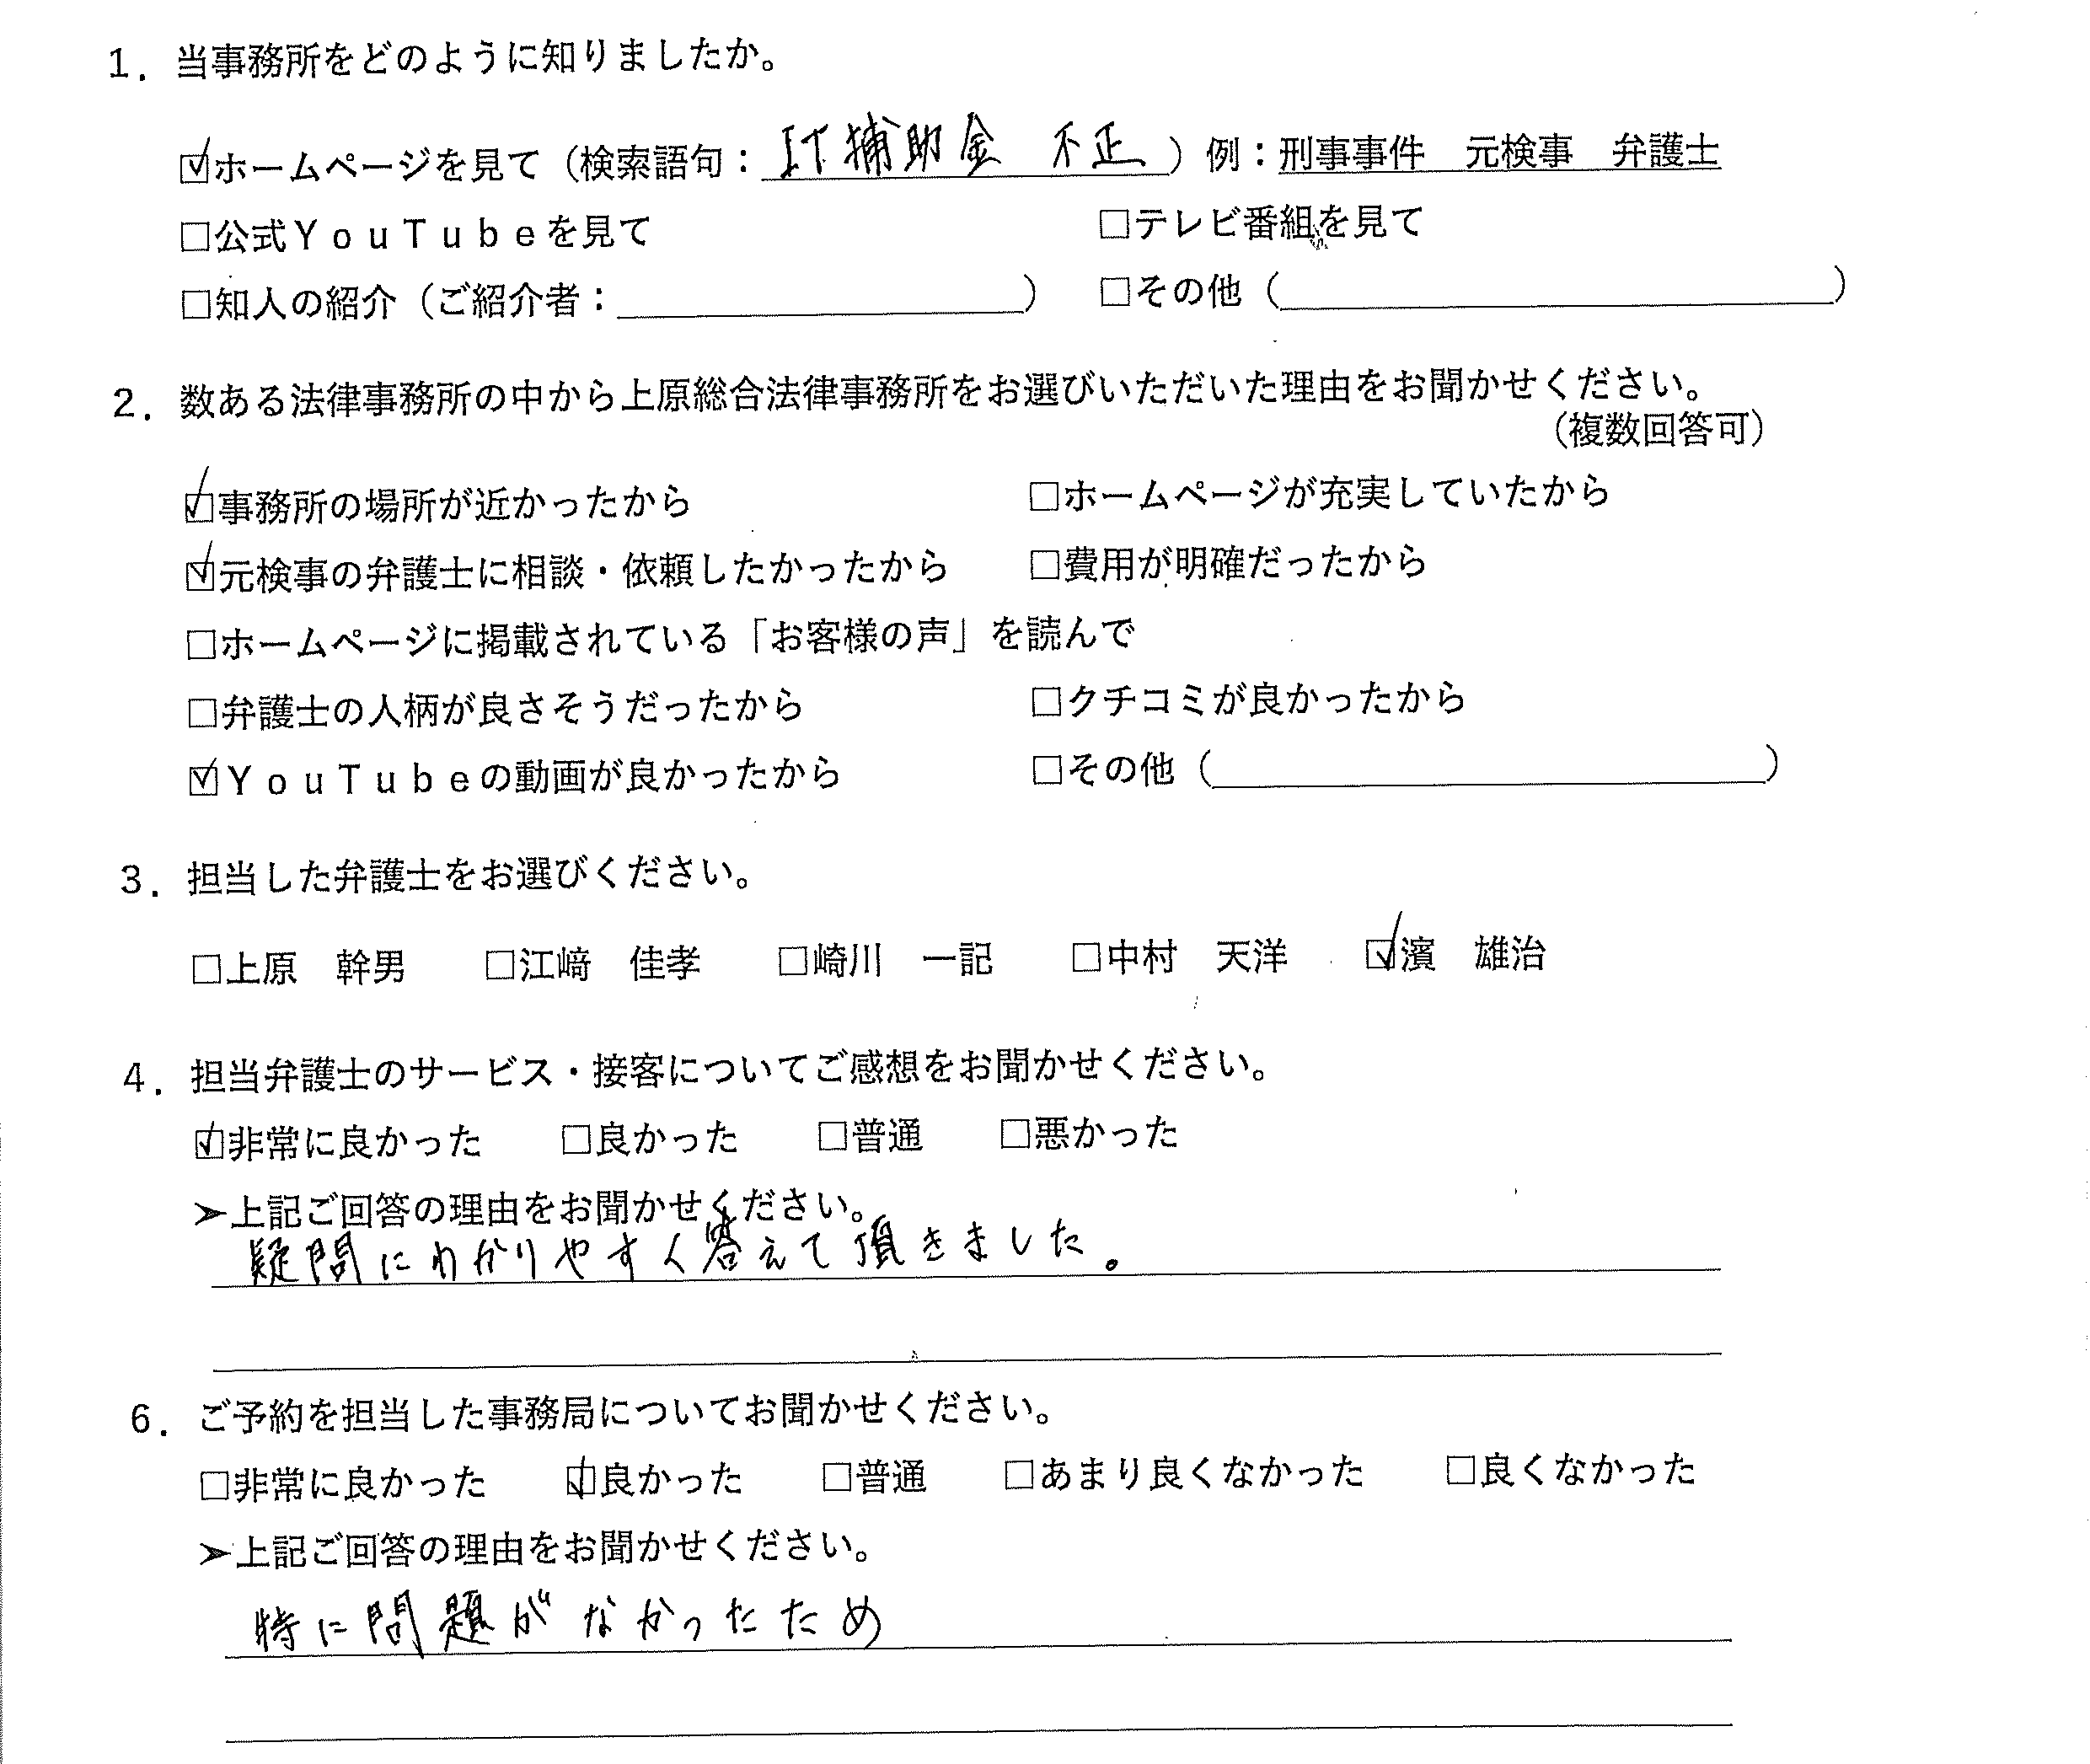 1. 当事務所をどのように知りましたか。
☑ホームページを見て（検索語句：IT補助金 不正）例：刑事事件 元検事 弁護士
□公式YouTubeを見て □テレビ番組を見て
□知人の紹介（ご紹介者： ） □その他（ ）
2. 数ある法律事務所の中から上原総合法律事務所をお選びいただいた理由をお聞かせください。
（複数回答可）
☑事務所の場所が近かったから □ホームページが充実していたから
☑元検事の弁護士に相談・依頼したかったから □費用が明確だったから
□ホームページに掲載されている「お客様の声」を読んで
□弁護士の人柄が良さそうだったから □クチコミが良かったから
☑YouTubeの動画が良かったから □その他（ ）
3. 担当した弁護士をお選びください。
□上原 幹男 □江﨑 佳孝 □崎川 一記 □中村 天洋 ☑濱 雄治
4. 担当弁護士のサービス・接客についてご感想をお聞かせください。
☑非常に良かった □良かった □普通 □悪かった
➢上記ご回答の理由をお聞かせください。
疑問にわかりやすく答えて頂きました。
6. ご予約を担当した事務局についてお聞かせください。
□非常に良かった ☑良かった □普通 □あまり良くなかった □良くなかった
➢上記ご回答の理由をお聞かせください。
特に問題がなかったため